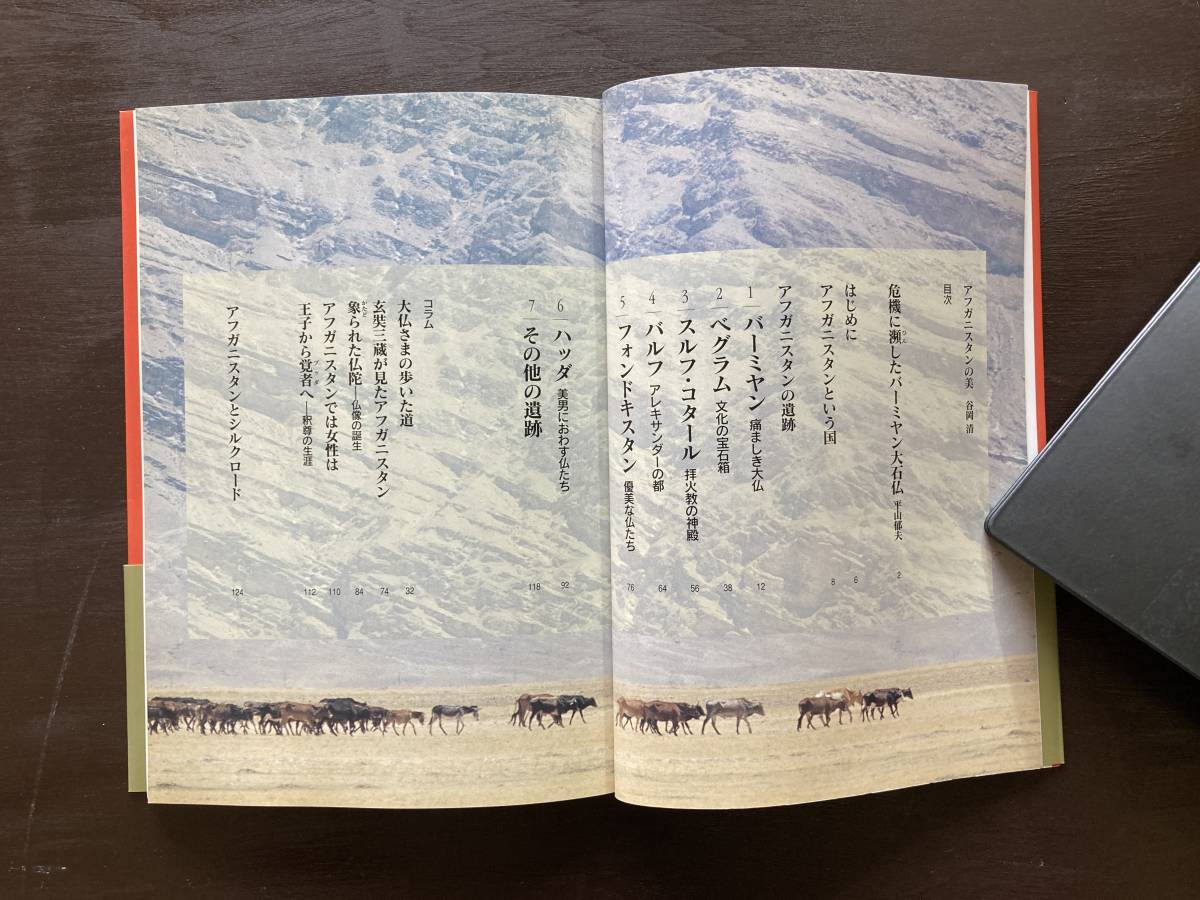 アフガニスタンの美 谷岡 清
目次
危機に瀕したバーミヤン大石仏 平山郁夫 2
ひん
はじめに 6
アフガニスタンという国 8
アフガニスタンの遺跡
1 バーミヤン 痛ましき大仏 12
2 ベグラム 文化の宝石箱 38
3 スルフ・コタール 拝火教の神殿 56
4 バルフ アレキサンダーの都 64
5 フォンドキスタン 優美な仏たち 76
6 ハッダ 美男におわす仏たち 92
7 その他の遺跡 118
コラム
大仏さまの歩いた道 32
玄奘三蔵が見たアフガニスタン 74
象られた仏陀—仏像の誕生 84
かたど
アフガニスタンでは女性は 110
王子から覚者へ—釈尊の生涯 112
ブッダ
アフガニスタンとシルクロード 124